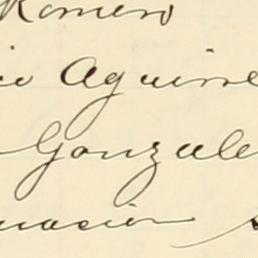 Romero
io Aguirre
Gonzale
nacion